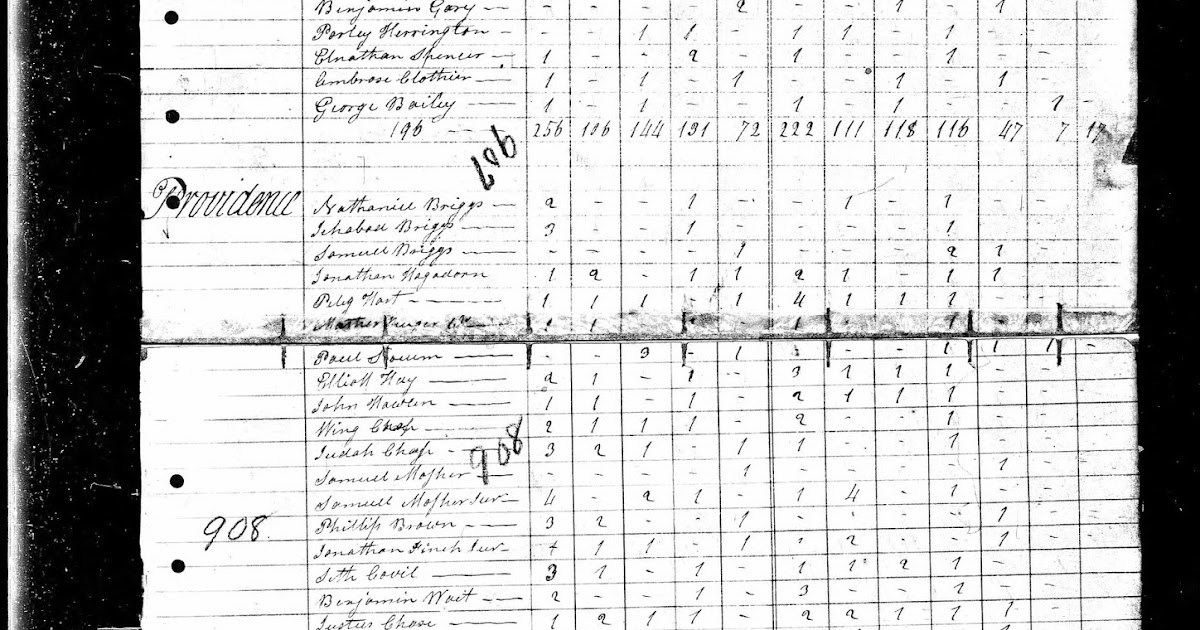 Benjamin Gary - - - - 2 - - 1 - 1 - -
Parley Herrington - - - 1 1 - 1 1 - 1 - - -
Elnathan Spencer - 1 - - 2 - 1 - - 1 - - -
Ambrose Clothier - 1 - 1 - 1 - - 1 - 1 - -
George Bailey - 1 - 1 - - 1 - 1 - - 1 -
196 - 256 106 144 131 72 222 111 118 116 47 7 17
906
Providence Nathaniel Briggs - 2 - - 1 - - 1 - 1 - - -
Ichabod Briggs - 3 - - 1 - - - - 1 - - -
Samuel Briggs - - - - - 1 - - - 2 1 - -
Jonathan Hagadorn 1 2 - 1 1 2 1 - 1 1 - -
Peleg Hart - 1 1 1 - 1 4 1 1 1 - - -
Paul - - - 3 - 1 - - 1 1 1 -
Elliott Hay - 2 1 - 1 - 3 1 1 1 - - -
John - 1 1 - 1 - 2 1 1 1 - - -
Wing Chase - 2 1 1 1 - 2 - - 1 - - -
Judah Chase - 3 2 1 - 1 1 - - 1 - - -
908
Samuel Mosher - - - - - 1 - - - - 1 - -
Samuel Mosher Jur - 4 - 2 1 - 1 4 - 1 - - -
908. Phillip Brown - 3 2 - - 1 - - - - 1 - -
Jonathan Finch Jur - 1 1 - 1 1 2 - - 1 - -
Seth Covil - 3 1 - 1 - 1 1 2 1 - - -
Benjamin Wait - 2 - - 1 - 3 - - 1 - -
Justus Chase - 1 2 1 1 - 2 2 1 1 1 - -